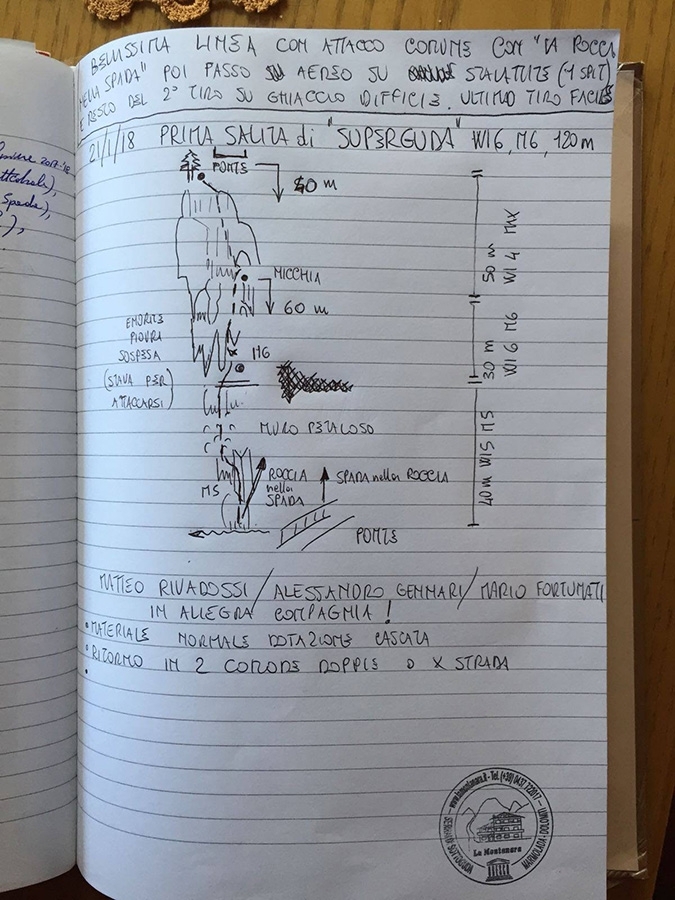 BELLISSIMA LINEA CON ATTACCO COMUNE CON "LA ROCCIA
NELLA SPADA" POI PASSO AEREO SU STALATTITE (1 SPIT)
E RESTO DEL 2° TIRO SU GHIACCIO DIFFICILE. ULTIMO TIRO FACILE
21/1/18 PRIMA SALITA di "SUPERGUDA" WI6, M6, 120m
PONTE
50 m
MICCHIA
60 m
ENORME
PIOVRA
SOSPESA
(STAVA PER
ATTACCARSI)
M6
MURO PETALOSO
ROCCIA
nella
SPADA
SPADA nella ROCCIA
M5
PONTE
50 m
WI 4 MAX
30 m
WI 6 M6
40m WI5 M5
MATTEO RIVADOSSI / ALESSANDRO GENNARI / MARIO FORTUNATI
IN ALLEGRA COMPAGNIA!
• MATERIALE NORMALE DOTAZIONE CASCATA
• RITORNO IN 2 COMODE DOPPIE O X STRADA
Tel. (+39) 0437 722017
La Montanara
MARMOLADA - DOLOMITI